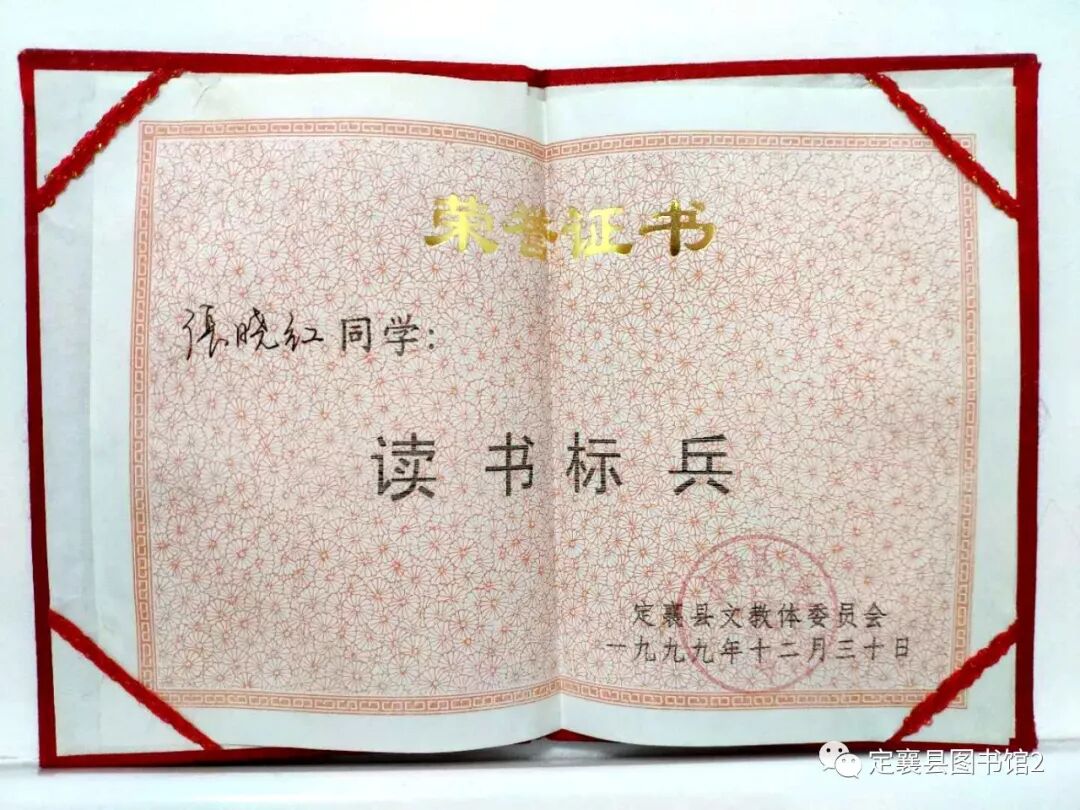 荣誉证书
張晓红同学:
读书标兵
定襄县文教体委员会
一九九九年十二月三十日
定襄县图书馆2